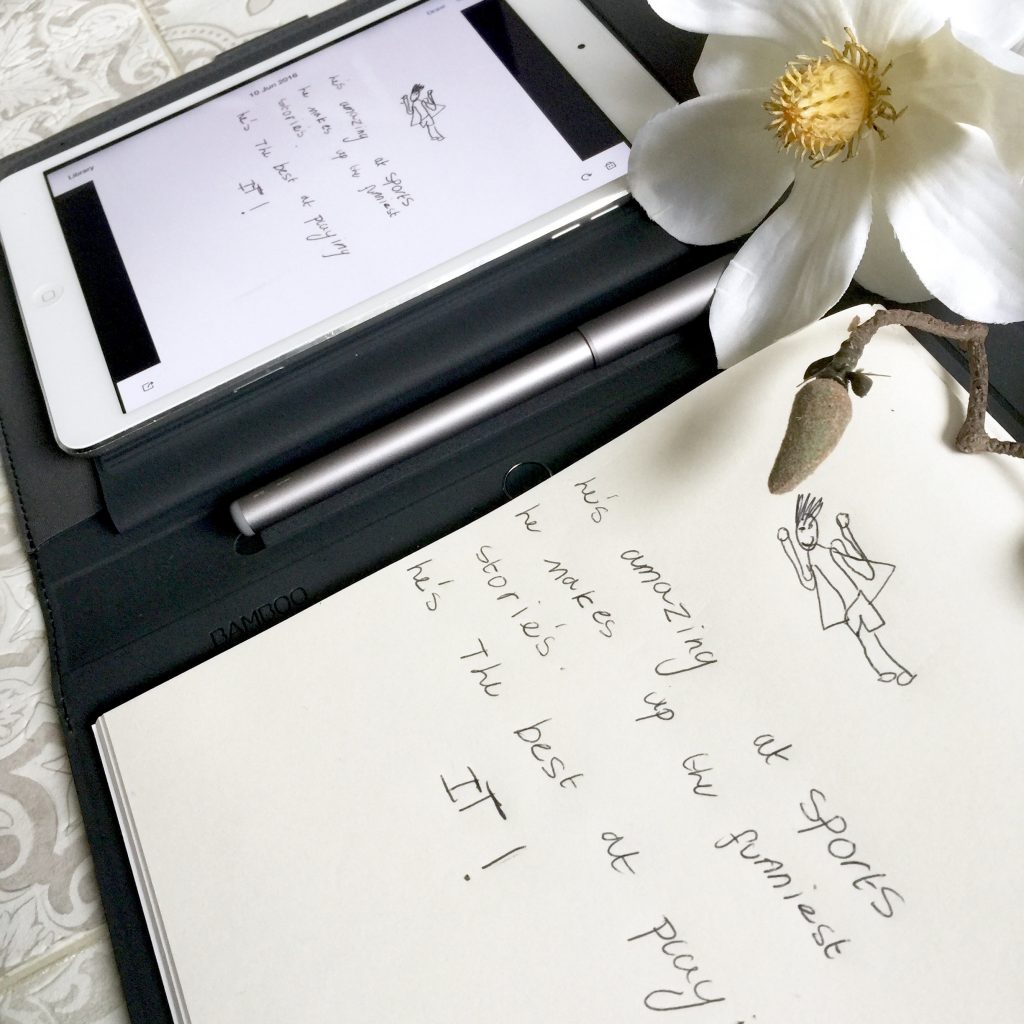 Library
10 Jun 2016
he's amazing at sports
he makes up the funniest
stories.
he's The best at playing
IT!
BAMBOO
he's amazing at sports
he makes up the funniest
storie's.
he's The best at play
IT!